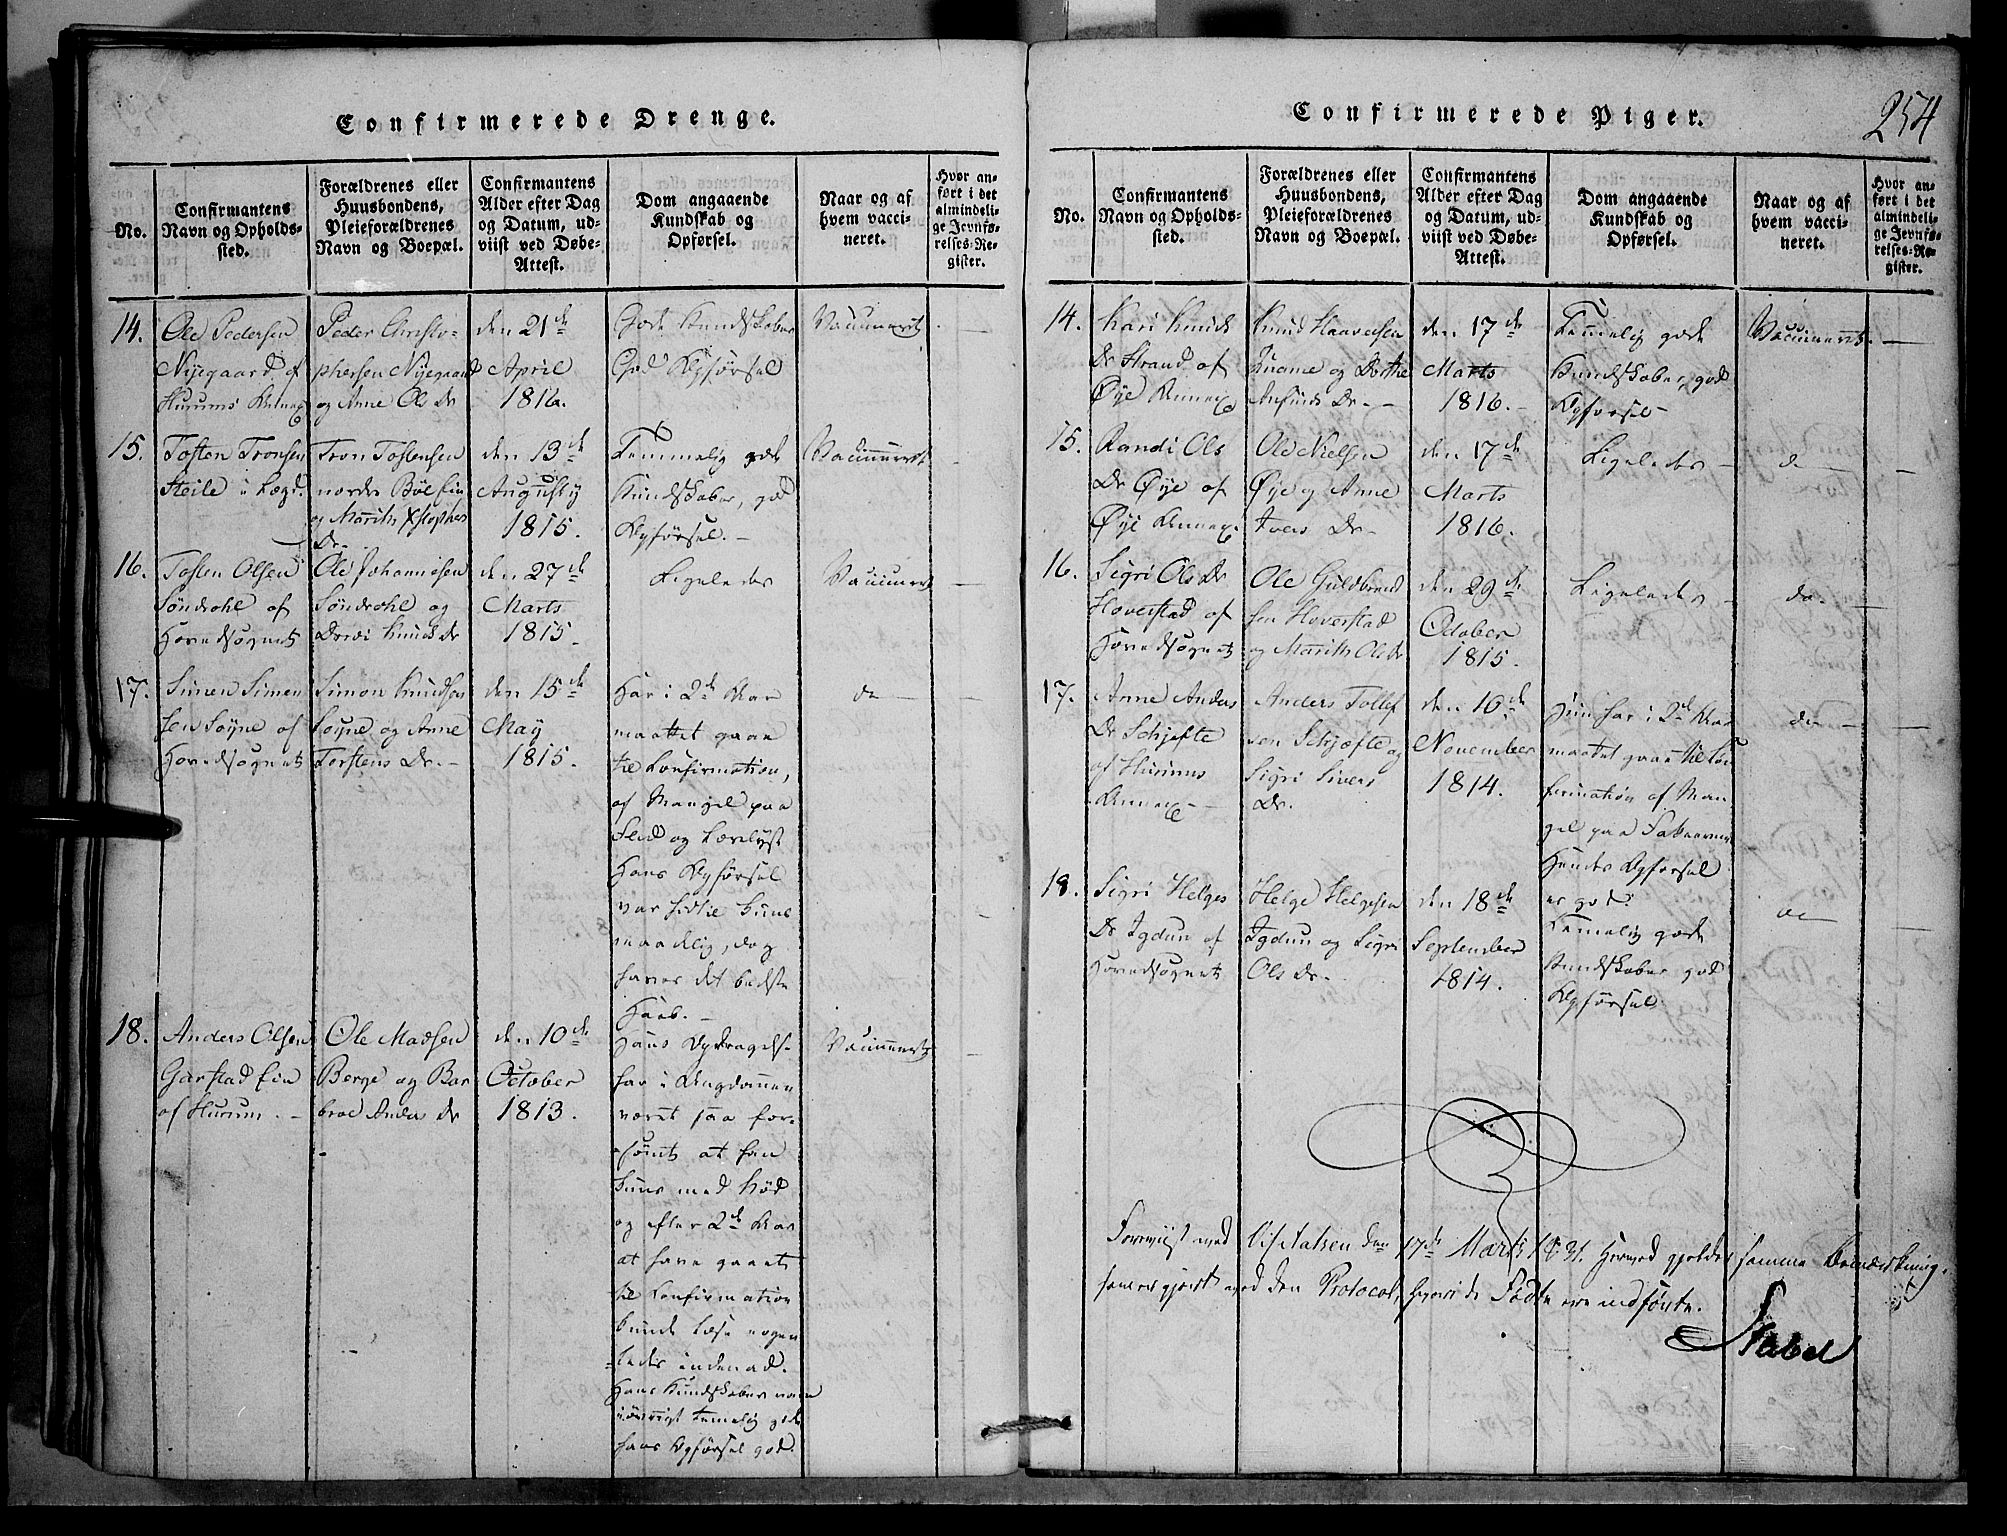 Confirmerede Drenge.
No.
Confirmantens
Navn og Opholds-
sted.
Forældrenes eller
Huusbondens,
Pleieforældrenes
Navn og Boepæl.
Confirmantens
Alder efter Dag
og Datum, ud-
viist ved Døbe-
Attest.
Dom angaaende
Kundskab og
Opførsel.
Naar og af
hvem vacci-
neret.
Hvor an-
ført i det
almindeli-
ge Jevnfø-
relses-Re-
gister.
14.
Ole Pedersen
Nÿegaard af
Hurums Annex
Peder Christo-
phersen Nÿegaard
og Anne Ols Dr
den 21de
April
1816.
Gode Kundskaber
God Opførsel
Vaccineret
15.
Tosten Tronsen
Heile i Lægd.
Tron Tostensen
nordre Böe Ein
og Marith Xstophers
Dr.
den 13de
Augusty
1815.
Temmelig gode
Kundskaber, god
Opførsel.
Vaccineret
16.
Tosten Olsen
Söndrohl af
Hovedsognet
Ole Johannesen
Söndrohl og
Knuds Dr
den 27de
Marts
1815.
Ligeledes
Vaccineret
17.
Simen Simen
sen Söÿne af
Hovedsognet
Simon Knudsen
Söÿne og Anne
Torstens Dr.
den 15de
May
1815.
Har i 2de Aar
maattet gaae
til Confirmation,
af Mangel paa
Flid og Lærelyst
Hans Opførsel
var hidtil
maadelig, dog
haves det bedste
Haab.
do
18.
Anders Olsen
Garstad Eie
af Hurum.
Ole Madsen
Berge og Bar
broe Anders Dr
den 10de
October
1813.
Hans Opdragelse
har i Ungdommen
været saa for-
sømt at han
kuns med Nöd
og efter 2de Aar
at have gaaet
til Confirmation
kunde læse nogen
ledes indenad.
Hans Kundskaber vare
iövrigt temelig gode
hans Opførsel god.
Vaccineret
Confirmerede Piger.
254
No.
Confirmantens
Navn og Opholds-
sted.
Forældrenes eller
Huusbondens,
Pleieforældrenes
Navn og Boepæl.
Confirmantens
Alder efter Dag
og Datum, ud-
viist ved Døbe-
Attest.
Dom angaaende
Kundskab og
Opførsel.
Naar og af
hvem vacci-
neret.
Hvor an-
ført i det
almindeli-
ge Jevnfø-
relses-Re-
gister.
14.
Kari Knuds
Dr Strand af
Øÿe Annex
Knud Haavelsen
Qvame og Dorthe
Anfinds Dr.
den 17de
Marts
1816.
Temmelig gode
Kundskaber, god
Opførsel
Vaccineret.
15.
Randi Ols
Dr Øÿe af
Øÿe Annex
Ole Nielsen
Øÿe og Anne
Ivers Dr
den 17de
Marts
1816.
Ligeledes
do
16.
Sigri Ols Dr
Hoverstad af
Hovedsognet
Ole Guldbrand
sen Hoverstad
og Marith Ols Dr
den 29de
October
1815.
Ligeledes
do.
17.
Anne Anders
Dr Schjefte
af Hurums
Annex
Anders Tollef
sen Schjæfte og
Sigri Sivers
Dr.
den 16de
November
1814.
Hun har i 2de Aar
maatet gaae til Con
firmation af Man
gel paa
Hendes Opførsel
er god.
do
18.
Sigri Helges
Dr Igdun af
Hovedsognet
Helge Helgesen
Igdun og Sigri
Ols Dr.
den 18de
September
1814.
Temelig gode
Kundskaber god
Opførsel
do
Foreviist ved Visitatsen den 17de Marts 1831. Herved gjelder samme Bemærkning,
som er gjort ved den Protocol, hvori de Fødte ere indførte.
Stabel